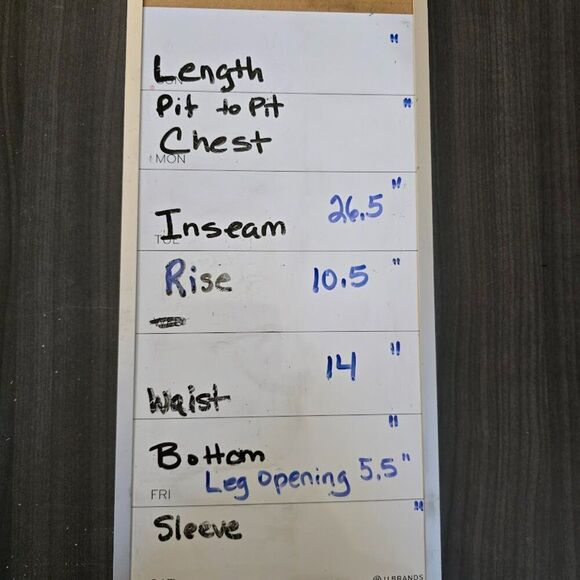 Length "
Pit to Pit "
Chest
MON
Inseam 26.5"
TUE
Rise 10.5"
Waist 14"
Bottom "
Leg Opening 5.5"
FRI
Sleeve "
U BRANDS